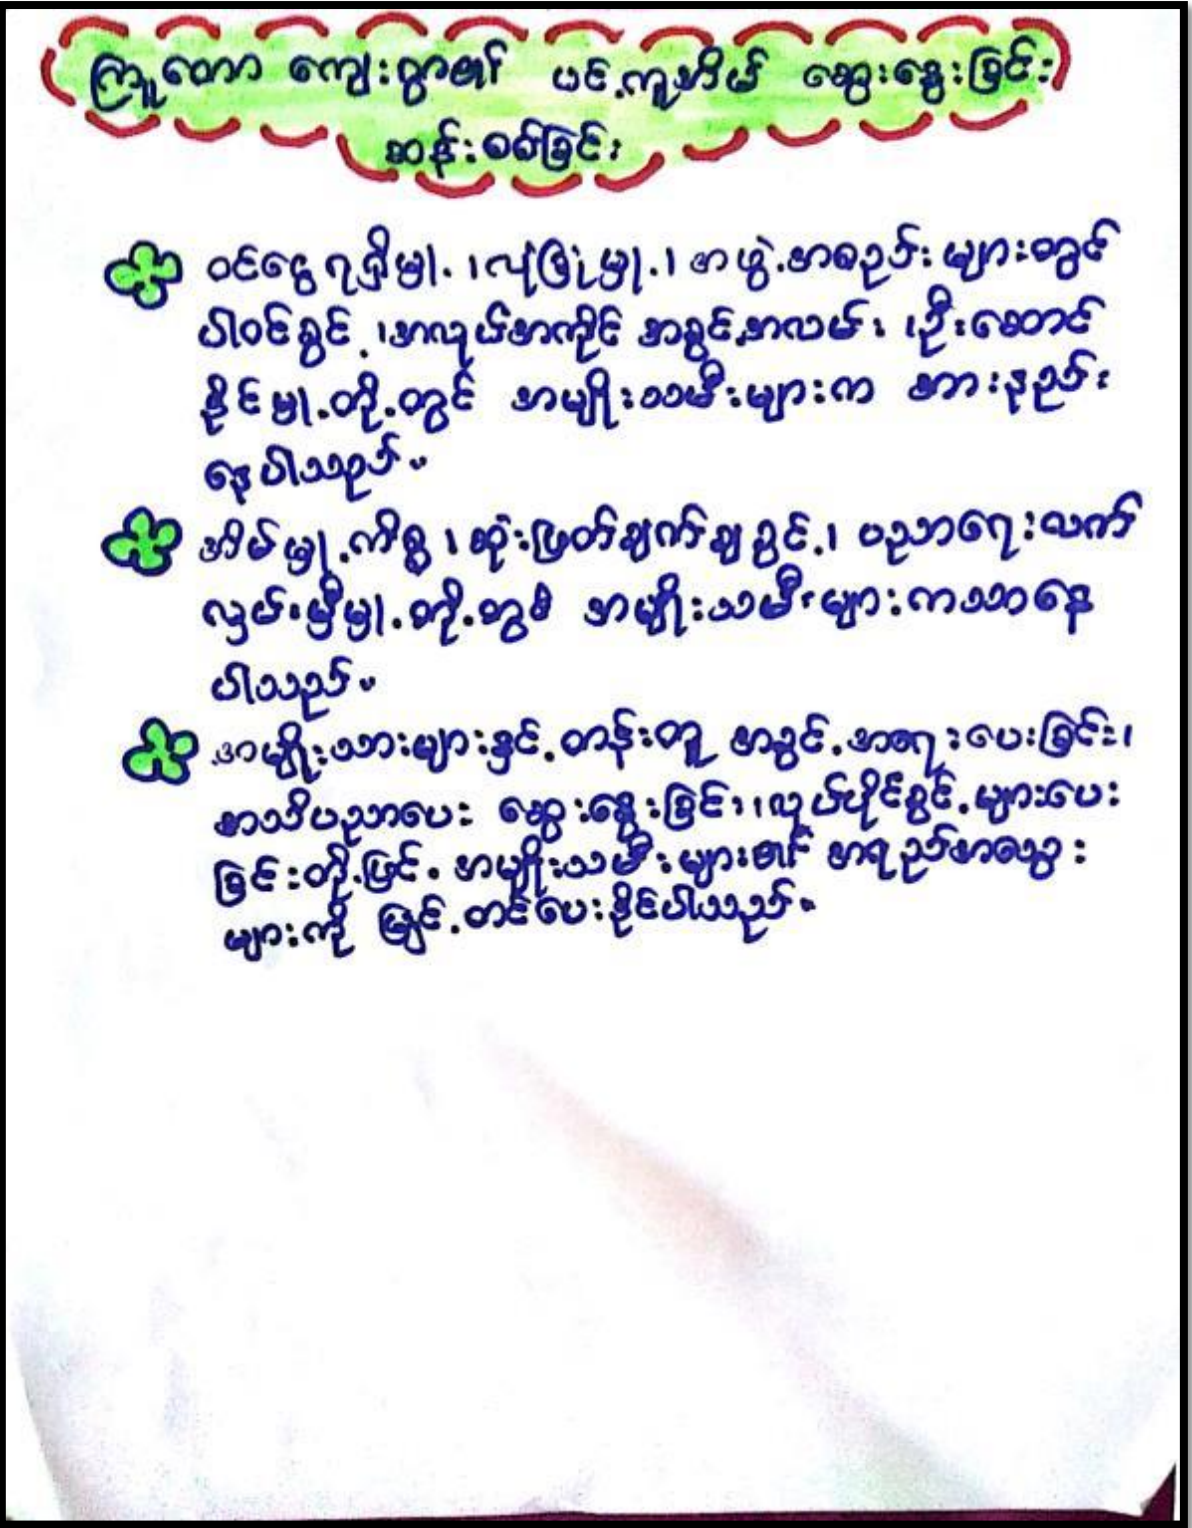 ကြူတော ကျေးရွာ၏ ပင့်ကူအိမ် ဆွေးနွေးခြင်း
ဆန်းစစ်ခြင်း
ဝင်ငွေရရှိမှု့၊လုံခြုံမှု့၊ အဖွဲ့အစည်းများတွင်
ပါဝင်ခွင့်၊အလုပ်အကိုင် အခွင့်အလမ်း ၊ဦးဆောင်
နိုင်မှု့တို့တွင် အမျိုးသမီးများက အားနည်း
နေပါသည်။
အိမ်မှု့ကိစ္စ၊ ဆုံးဖြတ်ချက်ချခွင့်၊ ပညာရေးလက်
လှမ်းမှီမှု့တို့တွင် အမျိုးသမီးများကသာနေ
ပါသည်။
အမျိုးသားများနှင့်တန်းတူ အခွင့်အရေးပေးခြင်း၊
အသိပညာပေး ဆွေးနွေးခြင်း၊လုပ်ပိုင်ခွင့်များပေး
ခြင်းတို့ဖြင့် အမျိုးသမီးများ၏ အရည်အသွေး
များကို မြှင့်တင်ပေးနိုင်ပါသည်။